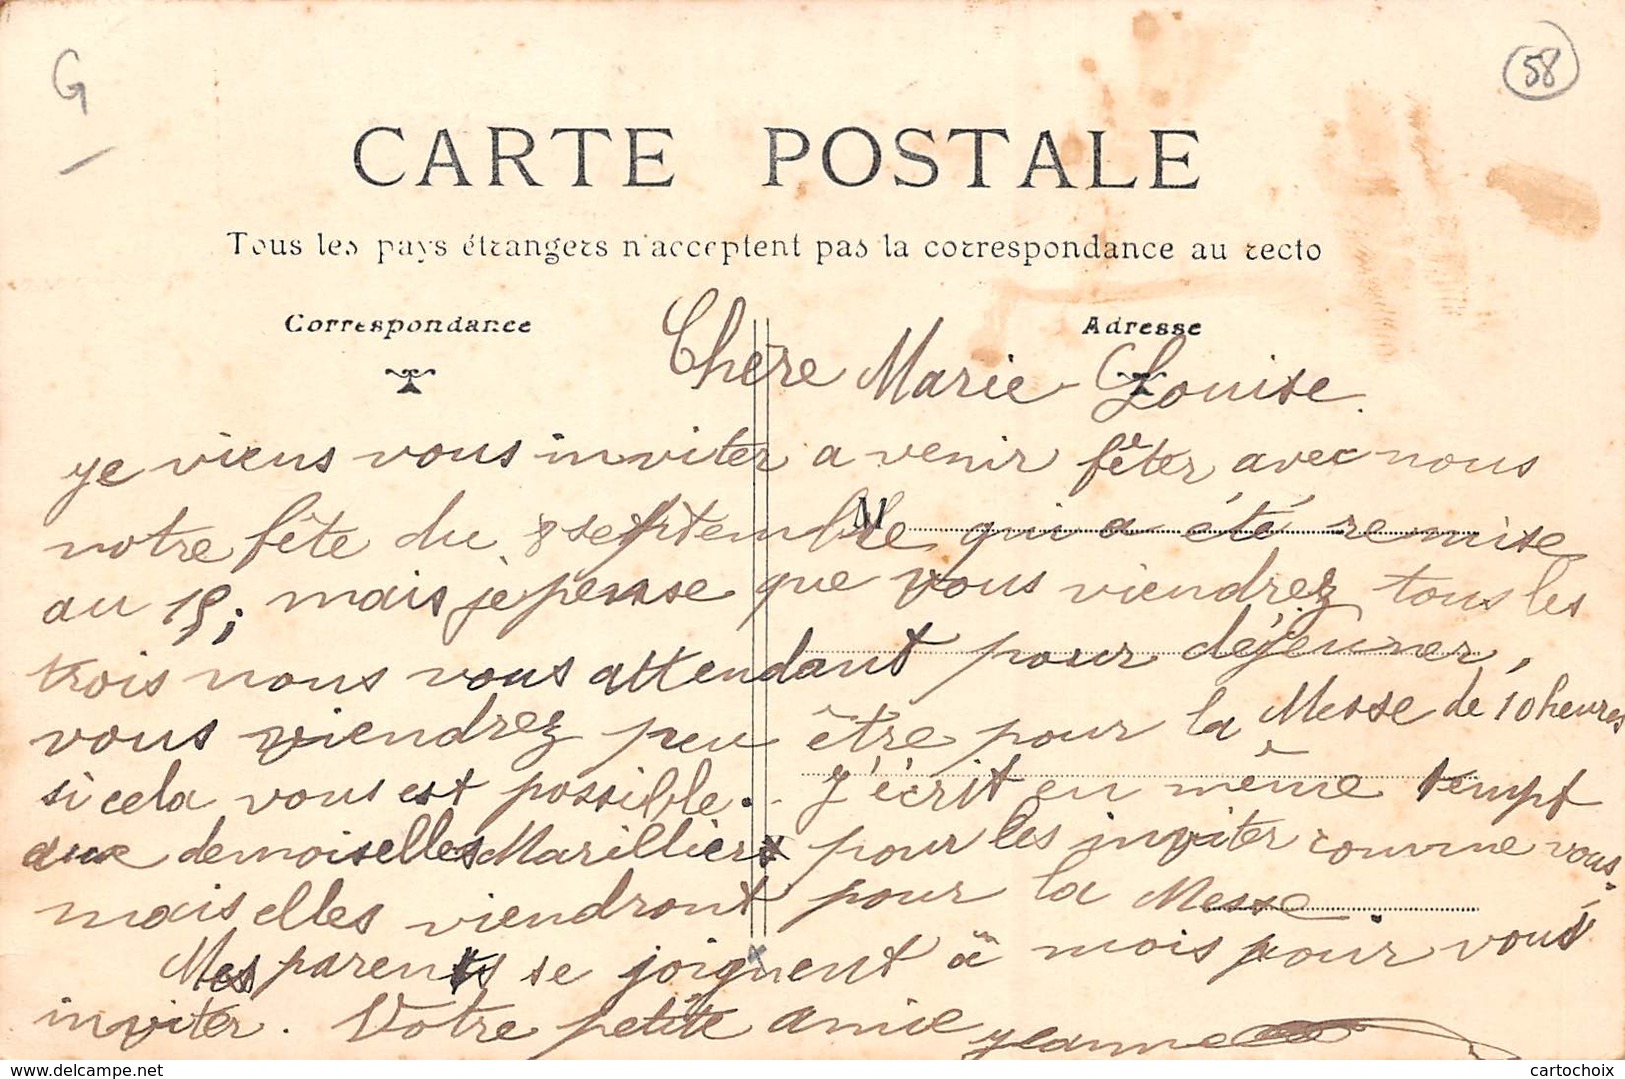 G
58
CARTE POSTALE
Tous les pays étrangers n'acceptent pas la correspondance au recto
Correspondance
Adresse
Chère Marie-Louise.
je viens vous inviter a venir fêter avec nous
M
notre fête du 8 septembre qui a été remise
au 15; mais je pense que vous viendrez tous les
trois nous vous attendant pour déjeuner,
vous viendrez peu être pour la Messe de 10 heures
si cela vous est possible. J'écrit en même temps
aux demoiselles Marilliers pour les inviter comme vous.
mais elles viendront pour la Messe.
Mes parents se joignent à mois pour vous
inviter. Votre petite amie Jeanne
delcampe.net
cartochoix